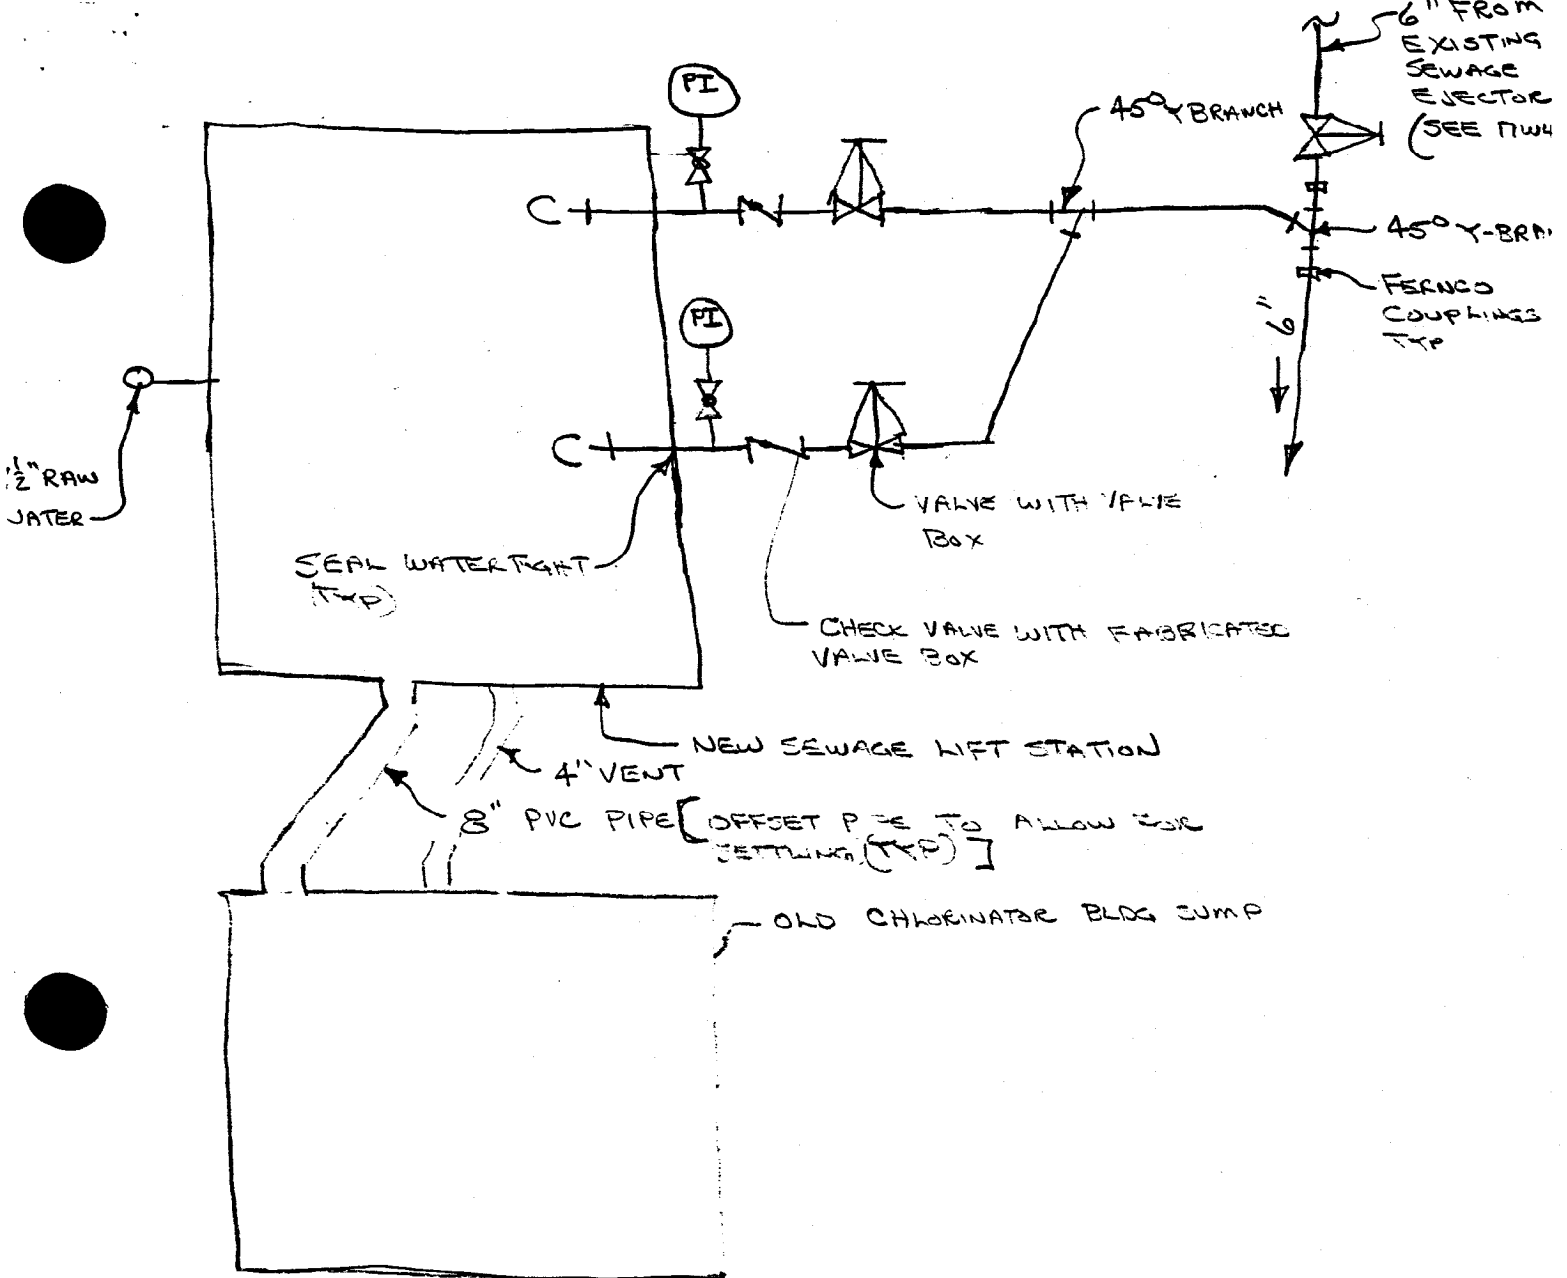 6" FROM
EXISTING
SEWAGE
EJECTOR
(SEE
PI
45° Y BRANCH
C
45° Y-BRA
FERNCO
COUPLINGS
TYP
6"
PI
C
1/2" RAW
WATER
VALVE WITH VALVE
BOX
SEAL WATERTIGHT
(TYP)
CHECK VALVE WITH FABRICATED
VALVE BOX
NEW SEWAGE LIFT STATION
4" VENT
8" PVC PIPE [OFFSET PIPE TO ALLOW FOR
SETTLING (TYP)]
OLD CHLORINATOR BLDG SUMP